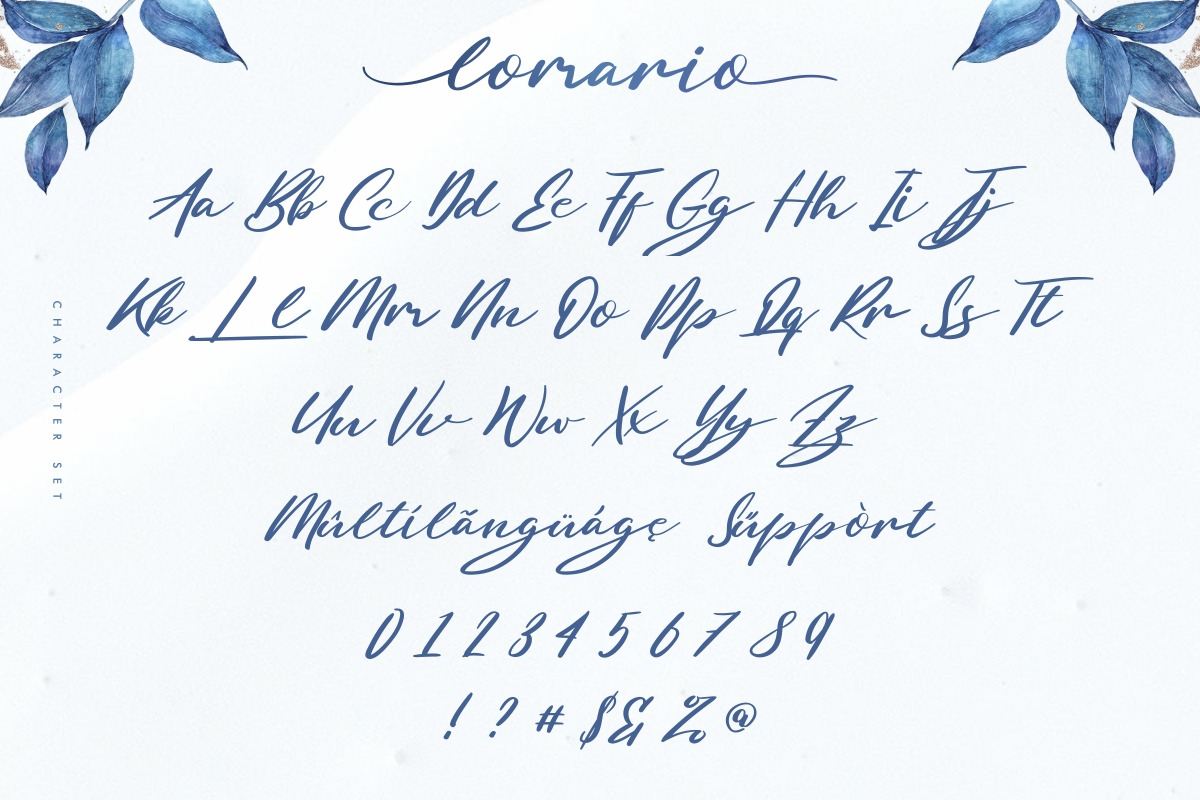 lomario
Aa Bb Cc Dd Ee Ff Gg Hh Ii Jj
Kk Ll Mm Nn Oo Pp Qq Rr Ss Tt
Uu Vv Ww Xx Yy Zz
Mûltílãngüágę Sűppòrt
0 1 2 3 4 5 6 7 8 9
! ? # $ & % @
CHARACTER SET